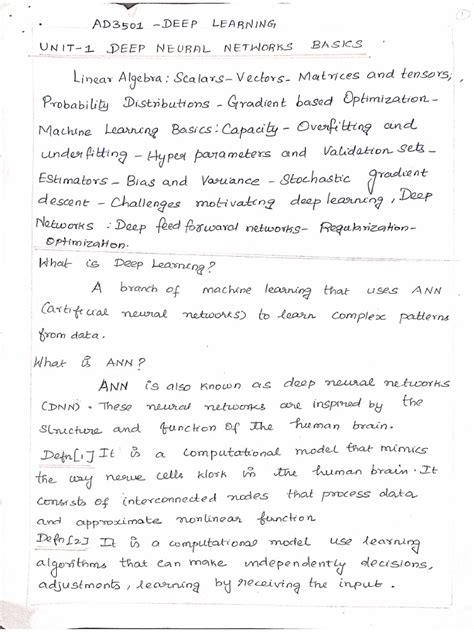 1
AD3501 - DEEP LEARNING
UNIT-1 DEEP NEURAL NETWORKS BASICS
Linear Algebra: Scalars - Vectors - Matrices and tensors;
Probability Distributions - Gradient based Optimization -
Machine Learning Basics: Capacity - Overfitting and
underfitting - Hyper parameters and Validation sets -
Estimators - Bias and Variance - Stochastic gradient
descent - Challenges motivating deep learning, Deep
Networks: Deep feed forward networks - Regularization -
Optimization.
What is Deep Learning?
A branch of machine learning that uses ANN
(artificial neural networks) to learn complex patterns
from data.
What is ANN?
ANN is also known as deep neural networks
(DNN). These neural networks are inspired by the
structure and function of the human brain.
Defn[1] It is a computational model that mimics
the way nerve cells work in the human brain. It
consists of interconnected nodes that process data
and approximate nonlinear function
Defn[2] It is a computational model use learning
algorithms that can make independently decisions,
adjustments, learning by receiving the input.